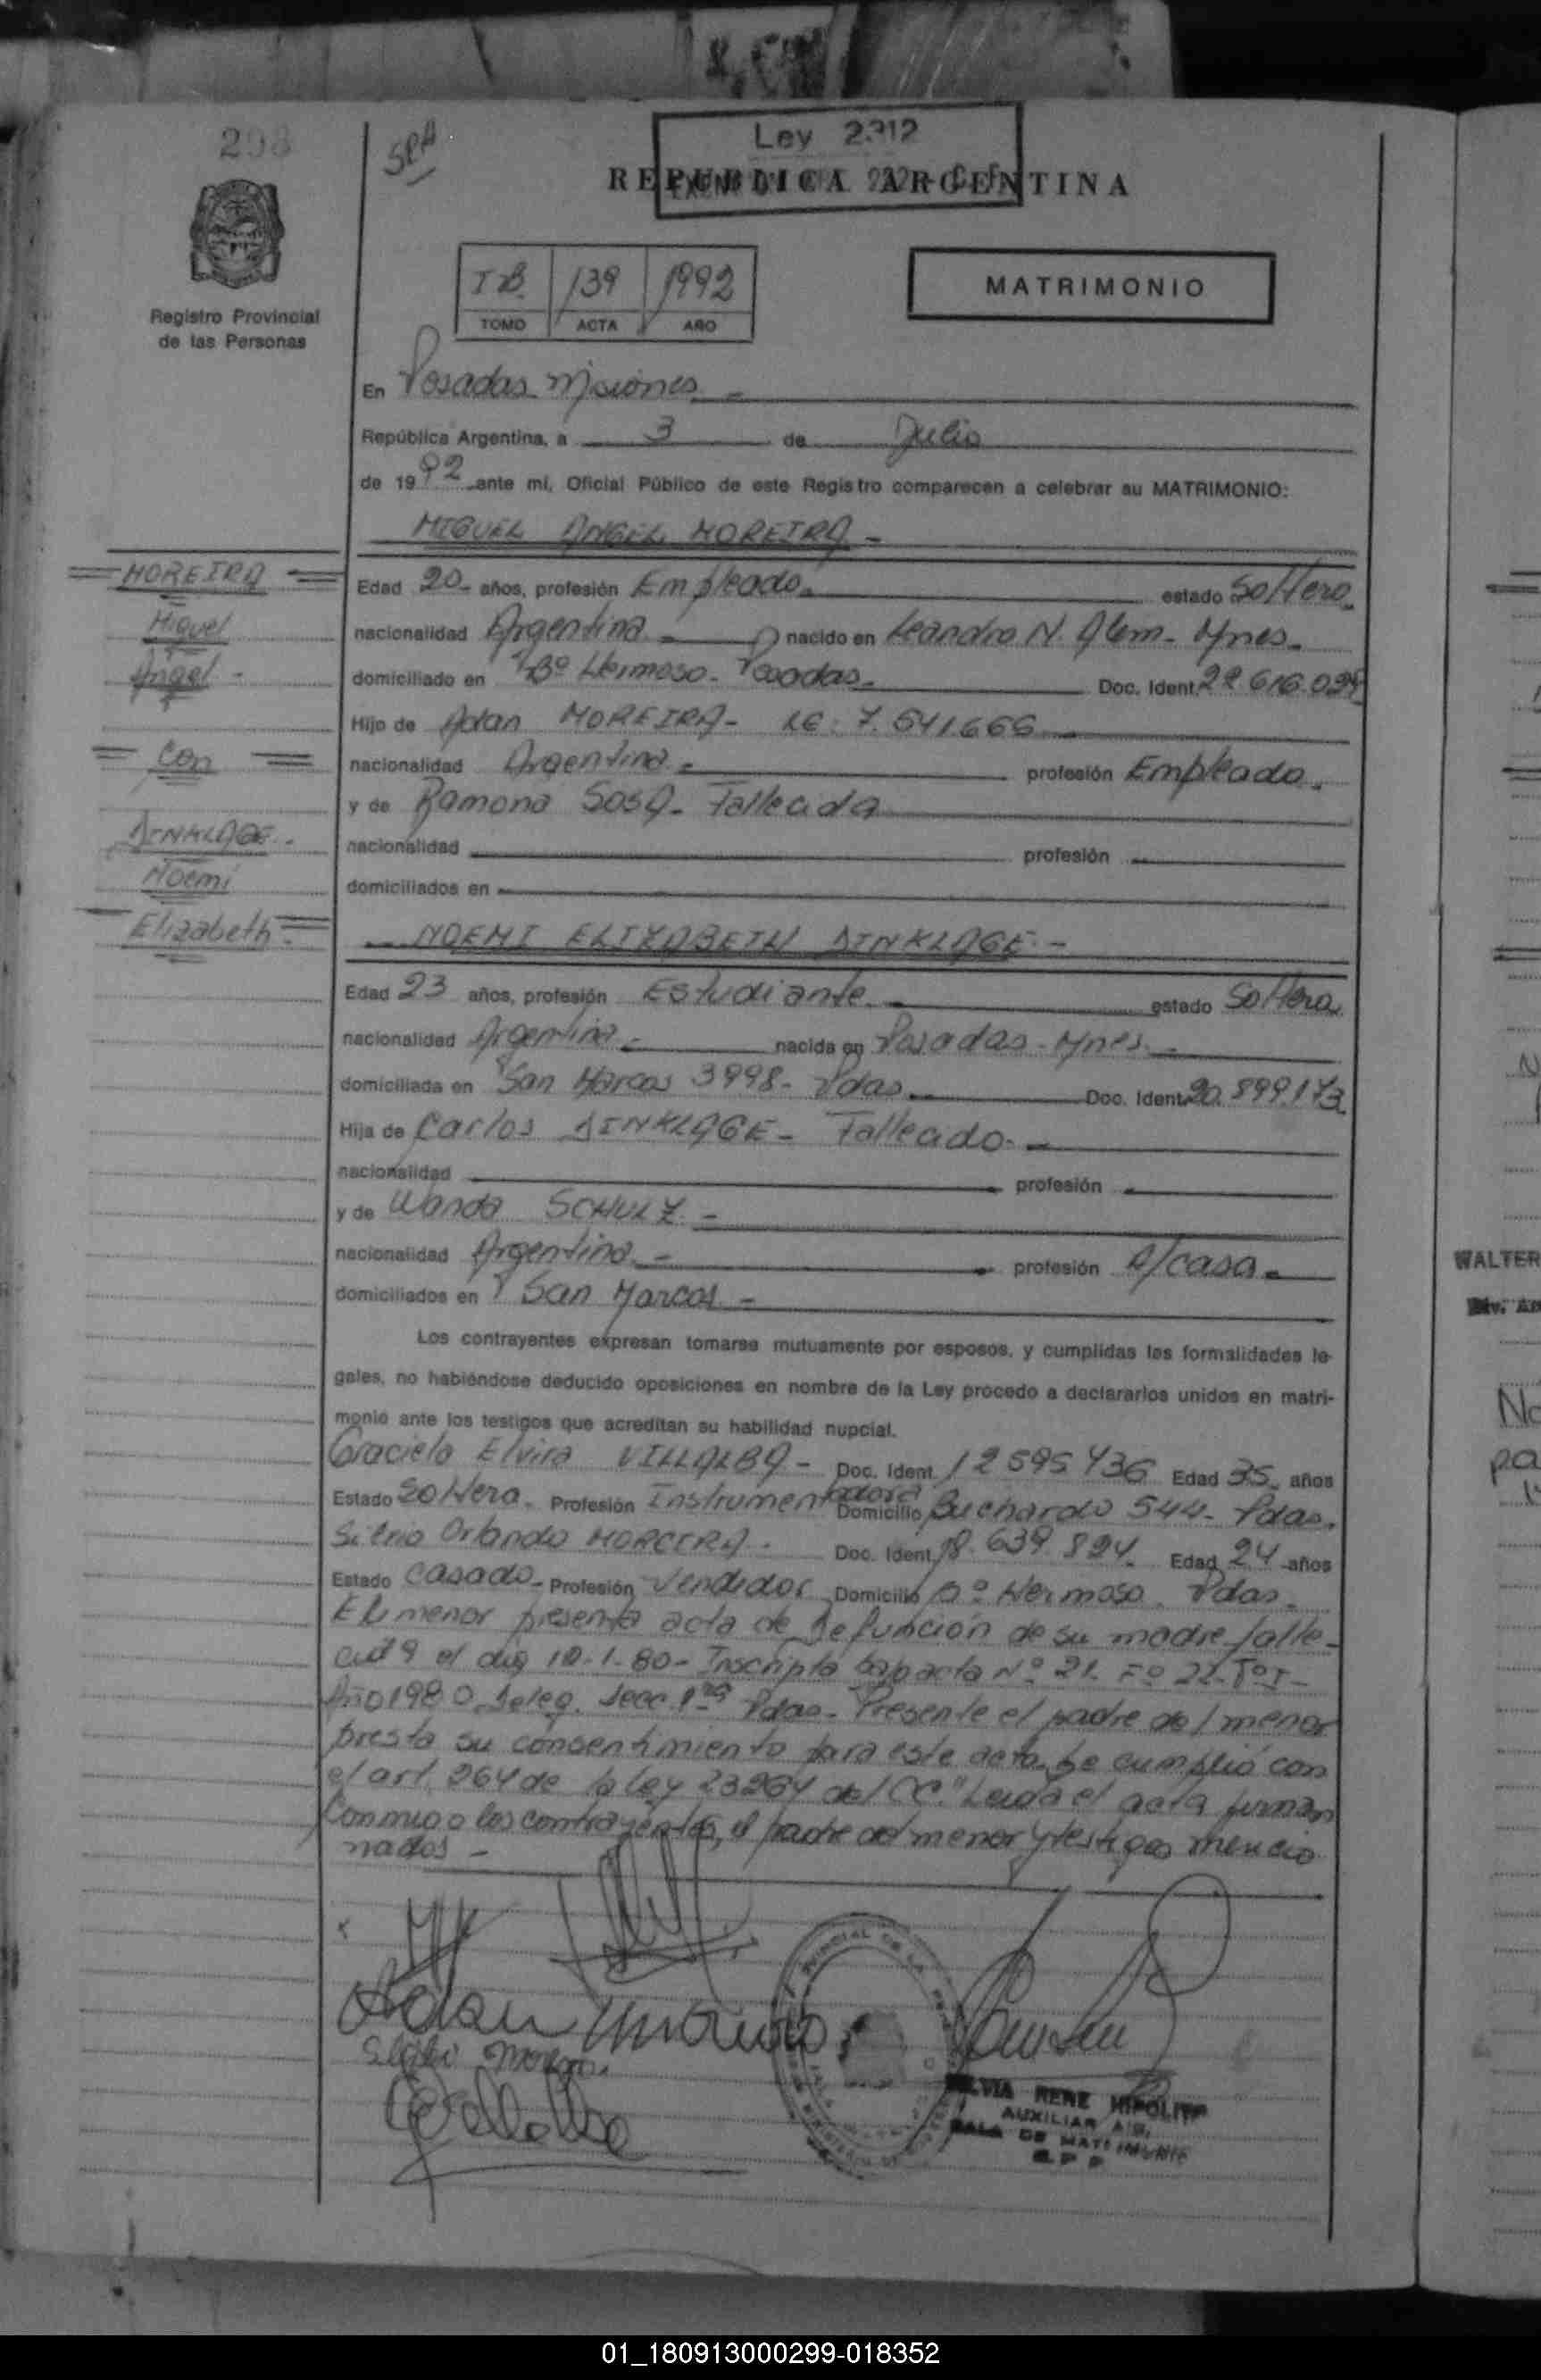 298
SPA
Ley 2312
REPUBLICA ARGENTINA
Registro Provincial
de las Personas
139 1992
TOMO ACTA AÑO
MATRIMONIO
En Posadas Misiones
República Argentina, a 3 de Julio
de 1992 ante mi, Oficial Público de este Registro comparecen a celebrar su MATRIMONIO:
MIGUEL ANGEL MOREIRA
MOREIRA
Miguel
Angel
con
DINKLAGE
Noemi
Elizabeth
Edad 20 años, profesión Empleado estado Soltero
nacionalidad Argentina nacido en Leandro N. Alem - Mnes.
domiciliado en Bº Hermoso - Posadas Doc. Ident.
Hijo de Adan MOREIRA - 7.541.666
nacionalidad Argentina profesión Empleado
y de Ramona SOSA - Fallecida
nacionalidad profesión
domiciliados en
NOEMI ELIZABETH DINKLAGE -
Edad 23 años, profesión Estudiante estado Soltera
nacionalidad Argentina nacida en Posadas - Mnes.
domiciliada en San Marcos 3998 - Pdas. Doc. Ident. 20.899.173
Hija de Carlos DINKLAGE - Fallecido
nacionalidad profesión
y de Wanda SCHULZ -
nacionalidad Argentina - profesión a/casa
domiciliados en San Marcos -
Los contrayentes expresan tomarse mutuamente por esposos, y cumplidas las formalidades le-
gales, no habiéndose deducido oposiciones en nombre de la Ley procedo a declararlos unidos en matri-
monio ante los testigos que acreditan su habilidad nupcial.
Graciela Elvira VILLALBA - Doc. Ident. 12595436 Edad 35 años
Estado Soltera Profesión Instrumentadora Domicilio Buchardo 544 - Pdas.
Orlando MOREIRA - Doc. Ident. 18.639.824 Edad 24 años
Estado Casado - Profesión Vendedor Domicilio Bº Hermoso. Pdas.
El menor presenta acta de defunción de su madre falle-
cida el día 10-1-80 - Inscripta bajo acta Nº 21. Fº 21 - TºI -
Año 1980 Deleg. Secc. 1ra Pdas - Presente el padre del menor
presta su consentimiento para este acto. Se cumplió con
el art. 264 de la ley 23264 del CC." Leída el acta firman
Conmigo los contrayentes, el padre del menor y testigos mencio
nados -
SILVIA RENE HIPOLITO
AUXILIAR
SALA DE MATRIMONIO
R.P.P
WALTER
01_180913000299-018352